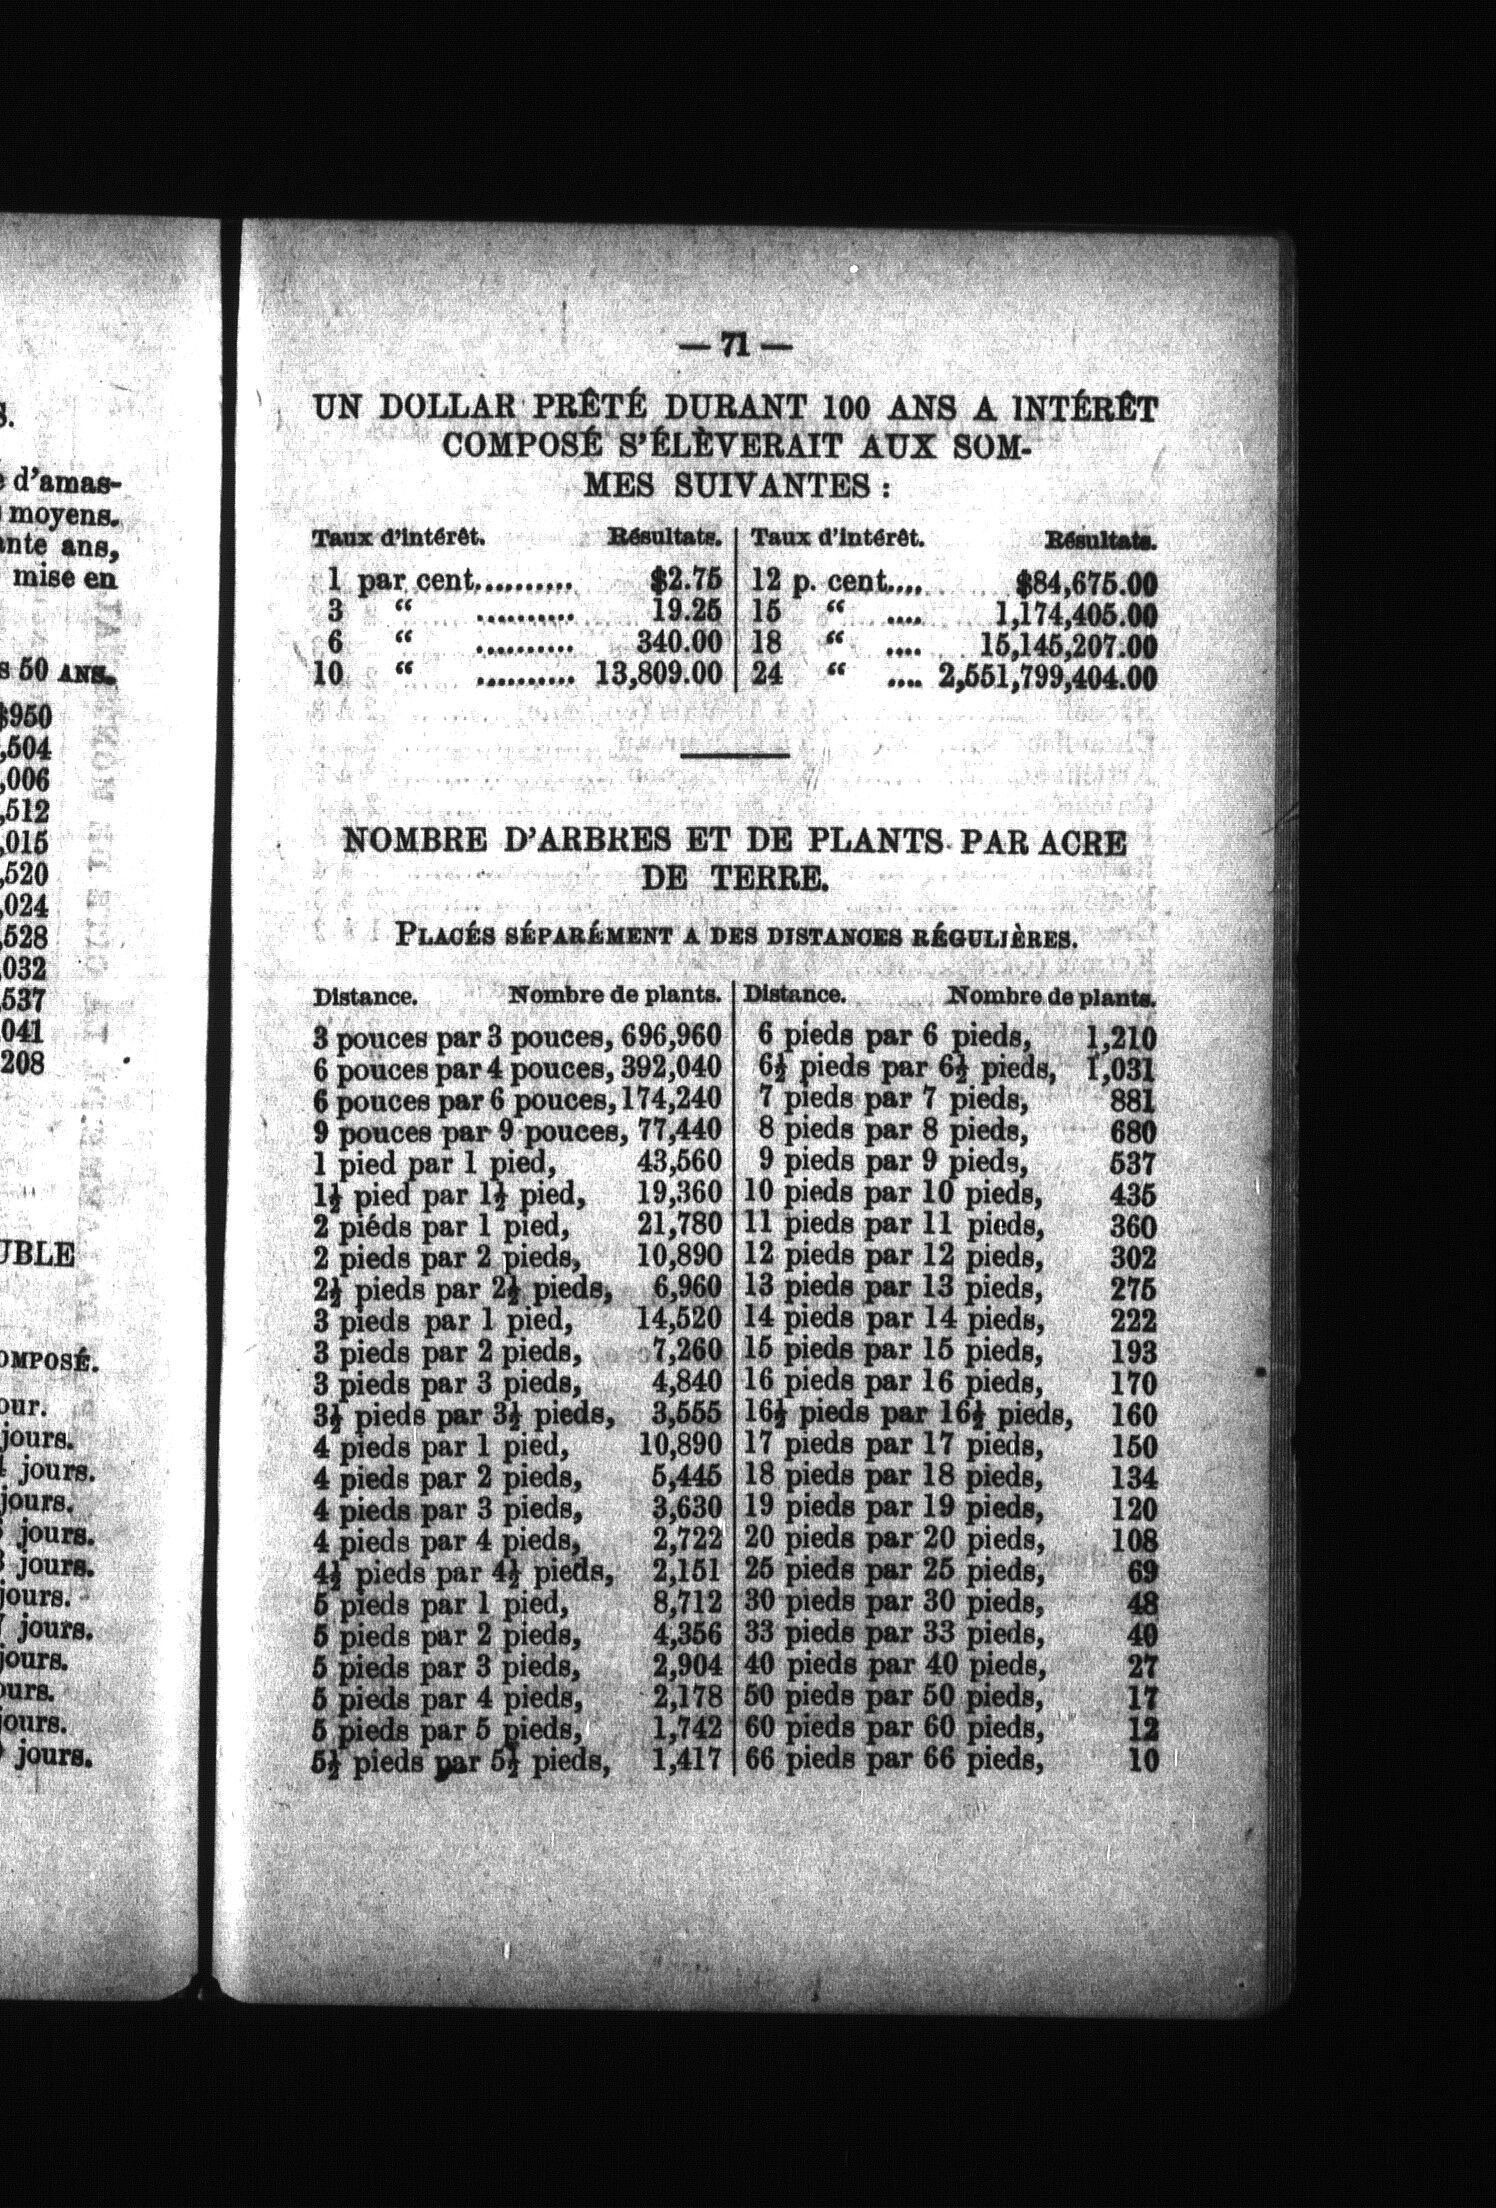 S.
d'amas-
moyens.
ans,
mise en
50 ANS.
$950
,504
,006
,512
,015
,520
,024
,528
,032
,537
041
208
UBLE
OMPOSÉ.
our.
jours.
jours.
jours.
jours.
jours.
jours.
7 jours.
jours.
ours.
jours.
jours.
— 71 —
UN DOLLAR PRÊTÉ DURANT 100 ANS A INTÉRÊT
COMPOSÉ S'ÉLÈVERAIT AUX SOM-
MES SUIVANTES :
Taux d'intérêt. Résultats. Taux d'intérêt. Résultats.
1 par cent.......... $2.75 12 p. cent.... $84,675.00
3 “ .......... 19.25 15 “ .... 1,174,405.00
6 “ .......... 340.00 18 “ .... 15,145,207.00
10 “ .......... 13,809.00 24 “ .... 2,551,799,404.00
NOMBRE D'ARBRES ET DE PLANTS PAR ACRE
DE TERRE.
PLACÉS SÉPARÉMENT A DES DISTANCES RÉGULIÈRES.
Distance. Nombre de plants. Distance. Nombre de plants.
3 pouces par 3 pouces, 696,960 6 pieds par 6 pieds, 1,210
6 pouces par 4 pouces, 392,040 6½ pieds par 6½ pieds, 1,031
6 pouces par 6 pouces, 174,240 7 pieds par 7 pieds, 881
9 pouces par 9 pouces, 77,440 8 pieds par 8 pieds, 680
1 pied par 1 pied, 43,560 9 pieds par 9 pieds, 537
1½ pied par 1½ pied, 19,360 10 pieds par 10 pieds, 435
2 piéds par 1 pied, 21,780 11 pieds par 11 pieds, 360
2 pieds par 2 pieds, 10,890 12 pieds par 12 pieds, 302
2½ pieds par 2½ pieds, 6,960 13 pieds par 13 pieds, 275
3 pieds par 1 pied, 14,520 14 pieds par 14 pieds, 222
3 pieds par 2 pieds, 7,260 15 pieds par 15 pieds, 193
3 pieds par 3 pieds, 4,840 16 pieds par 16 pieds, 170
3½ pieds par 3½ pieds, 3,555 16½ pieds par 16½ pieds, 160
4 pieds par 1 pied, 10,890 17 pieds par 17 pieds, 150
4 pieds par 2 pieds, 5,445 18 pieds par 18 pieds, 134
4 pieds par 3 pieds, 3,630 19 pieds par 19 pieds, 120
4 pieds par 4 pieds, 2,722 20 pieds par 20 pieds, 108
4½ pieds par 4½ pieds, 2,151 25 pieds par 25 pieds, 69
5 pieds par 1 pied, 8,712 30 pieds par 30 pieds, 48
5 pieds par 2 pieds, 4,356 33 pieds par 33 pieds, 40
5 pieds par 3 pieds, 2,904 40 pieds par 40 pieds, 27
5 pieds par 4 pieds, 2,178 50 pieds par 50 pieds, 17
5 pieds par 5 pieds, 1,742 60 pieds par 60 pieds, 12
5½ pieds par 5½ pieds, 1,417 66 pieds par 66 pieds, 10